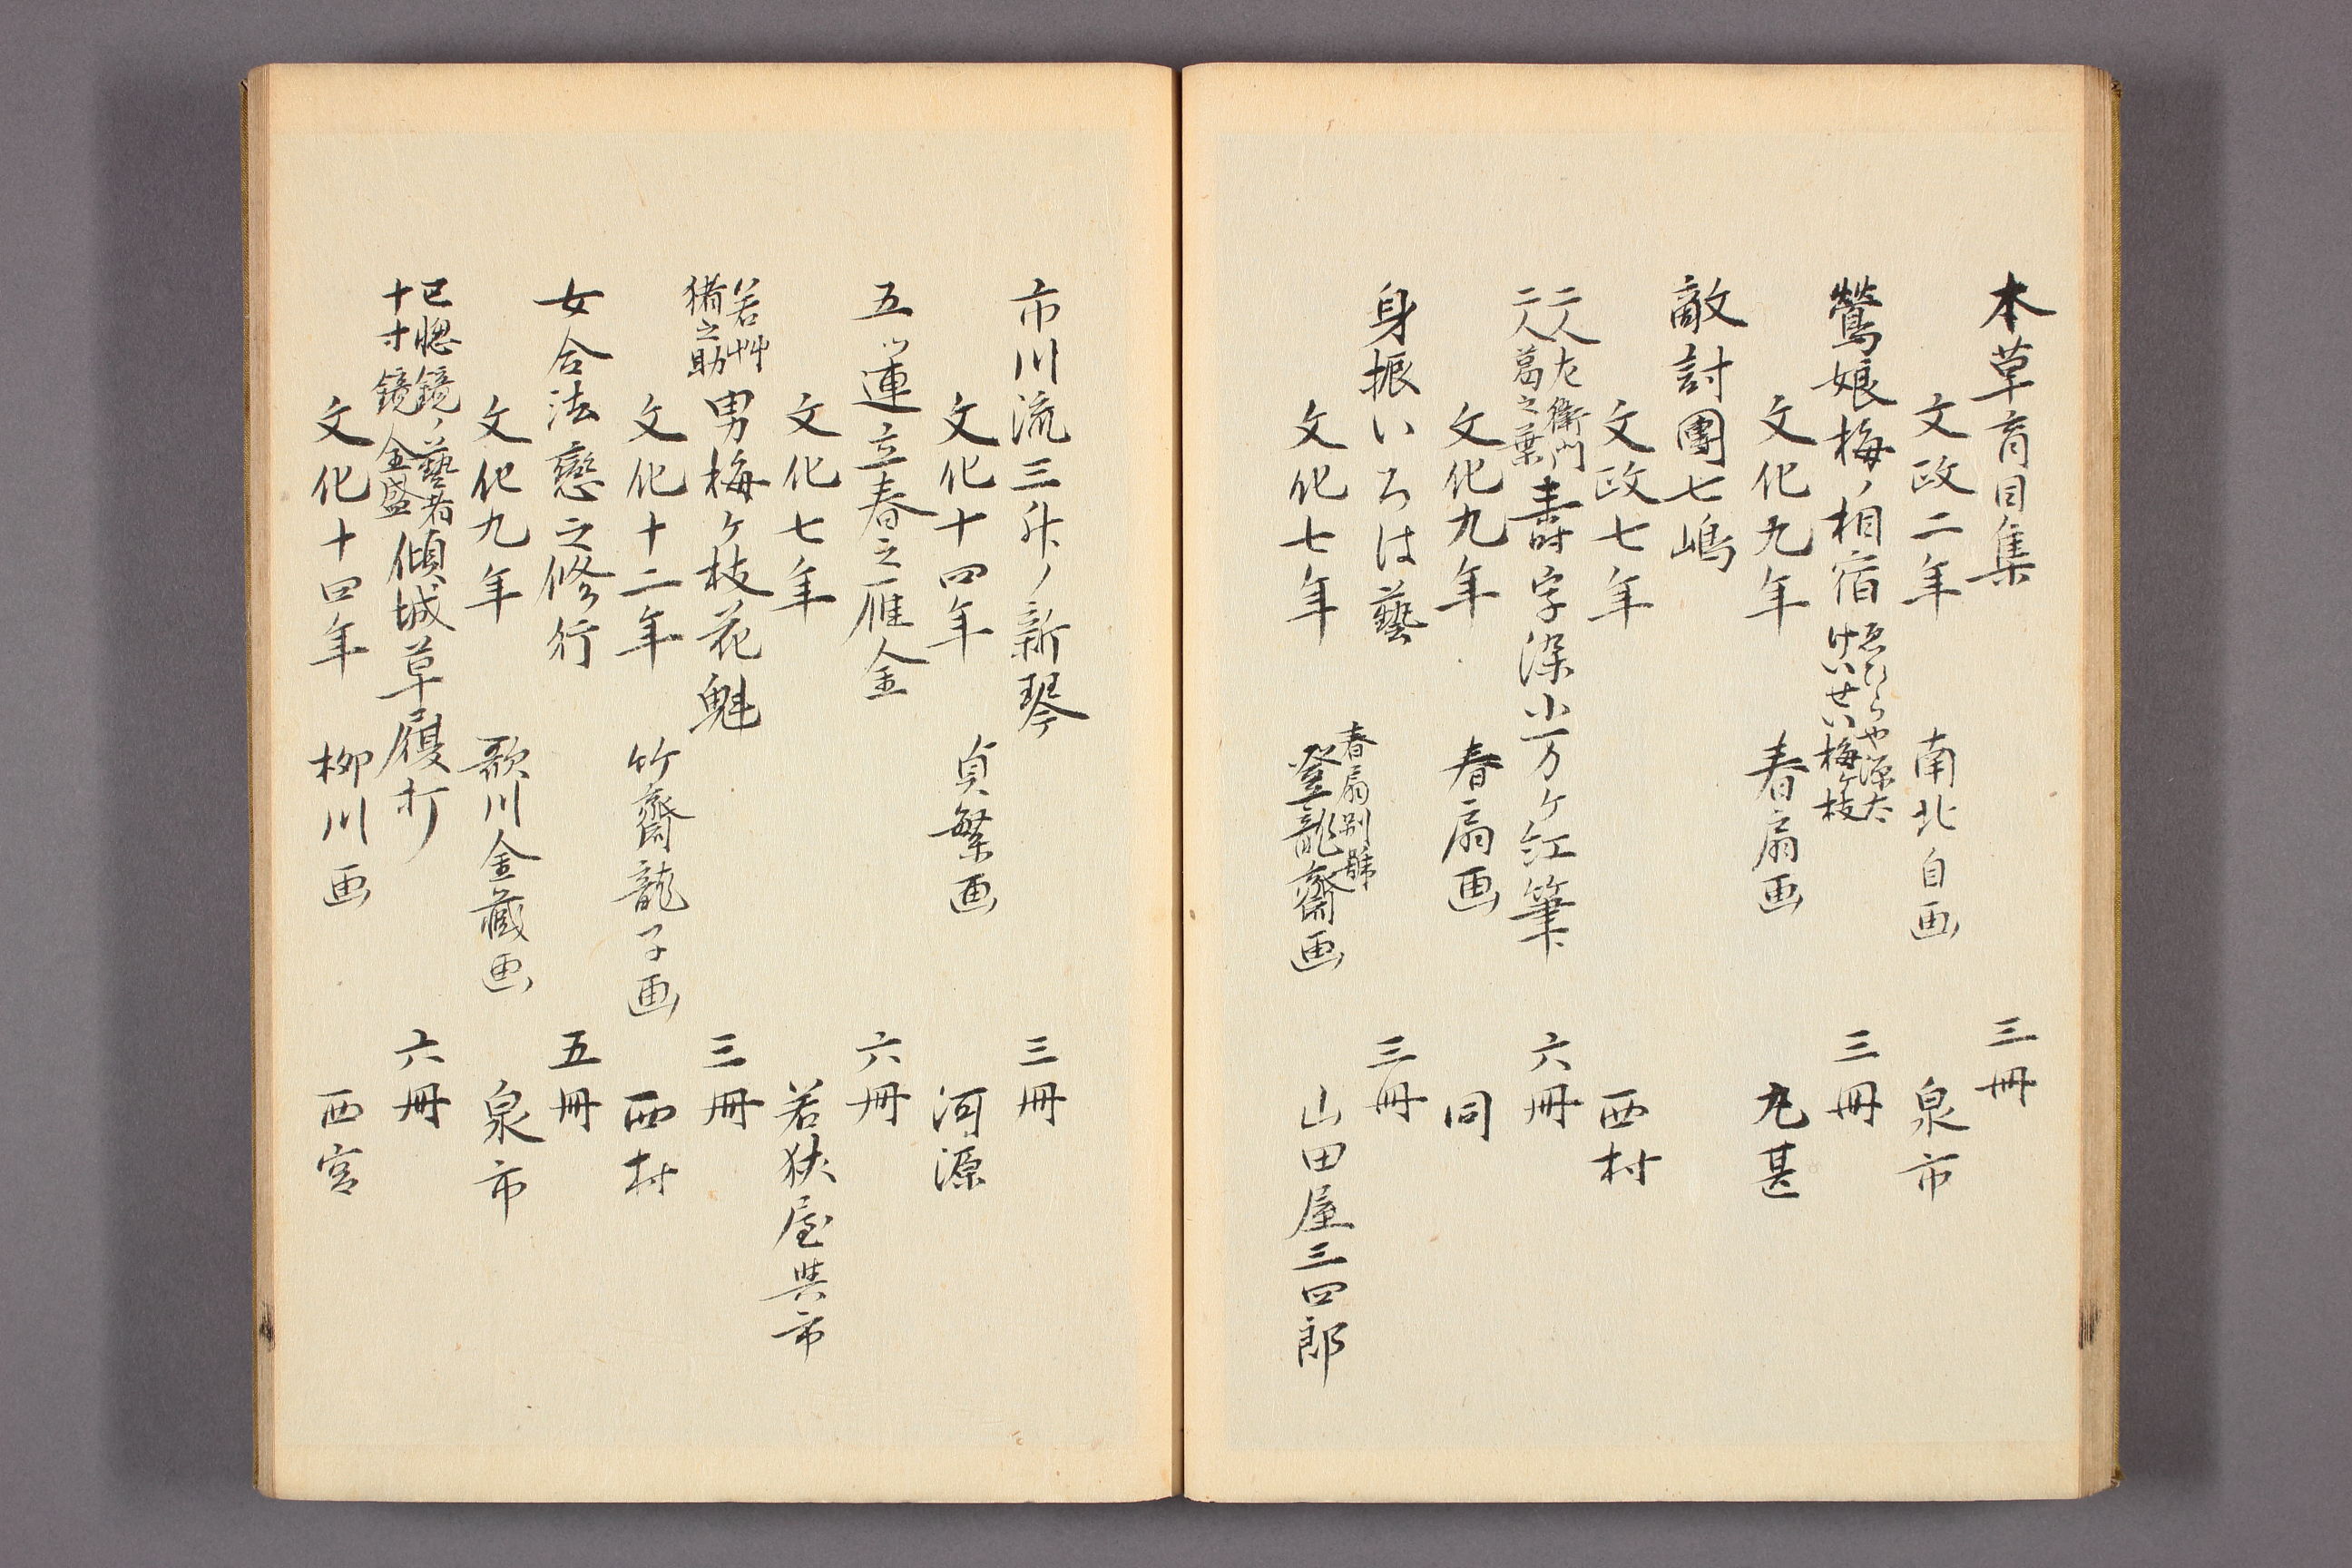 本草盲目集　三冊
文政二年　南北自画　泉市
鶯娘梅ノ相宿　ゑひらや源太　けいせい梅ヶ枝　三冊
文化九年　春扇画　丸甚
敵討團七嶋
文政七年　西村
二人左衛門　二人葛之葉　壽字深山万ヶ紅筆　六冊
文化九年　春扇画　同
身振いろは藝　三冊
文化七年　春扇別號　登龍齋画　山田屋三四郎
市川流三升ノ新琴　三冊
文化十四年　貞繁画　河源
五ッ蓮立春之雁金　六冊
文化七年　若狭屋與市
若艸　猪之助　男梅ヶ枝花魁　三冊
文化十二年　竹齋龍子画　西村
女合法戀之修行　五冊
文化九年　歌川金藏画　泉市
已惚鏡ノ藝者　十寸鏡　全盛　傾城草履打　六冊
文化十四年　柳川画　西宮